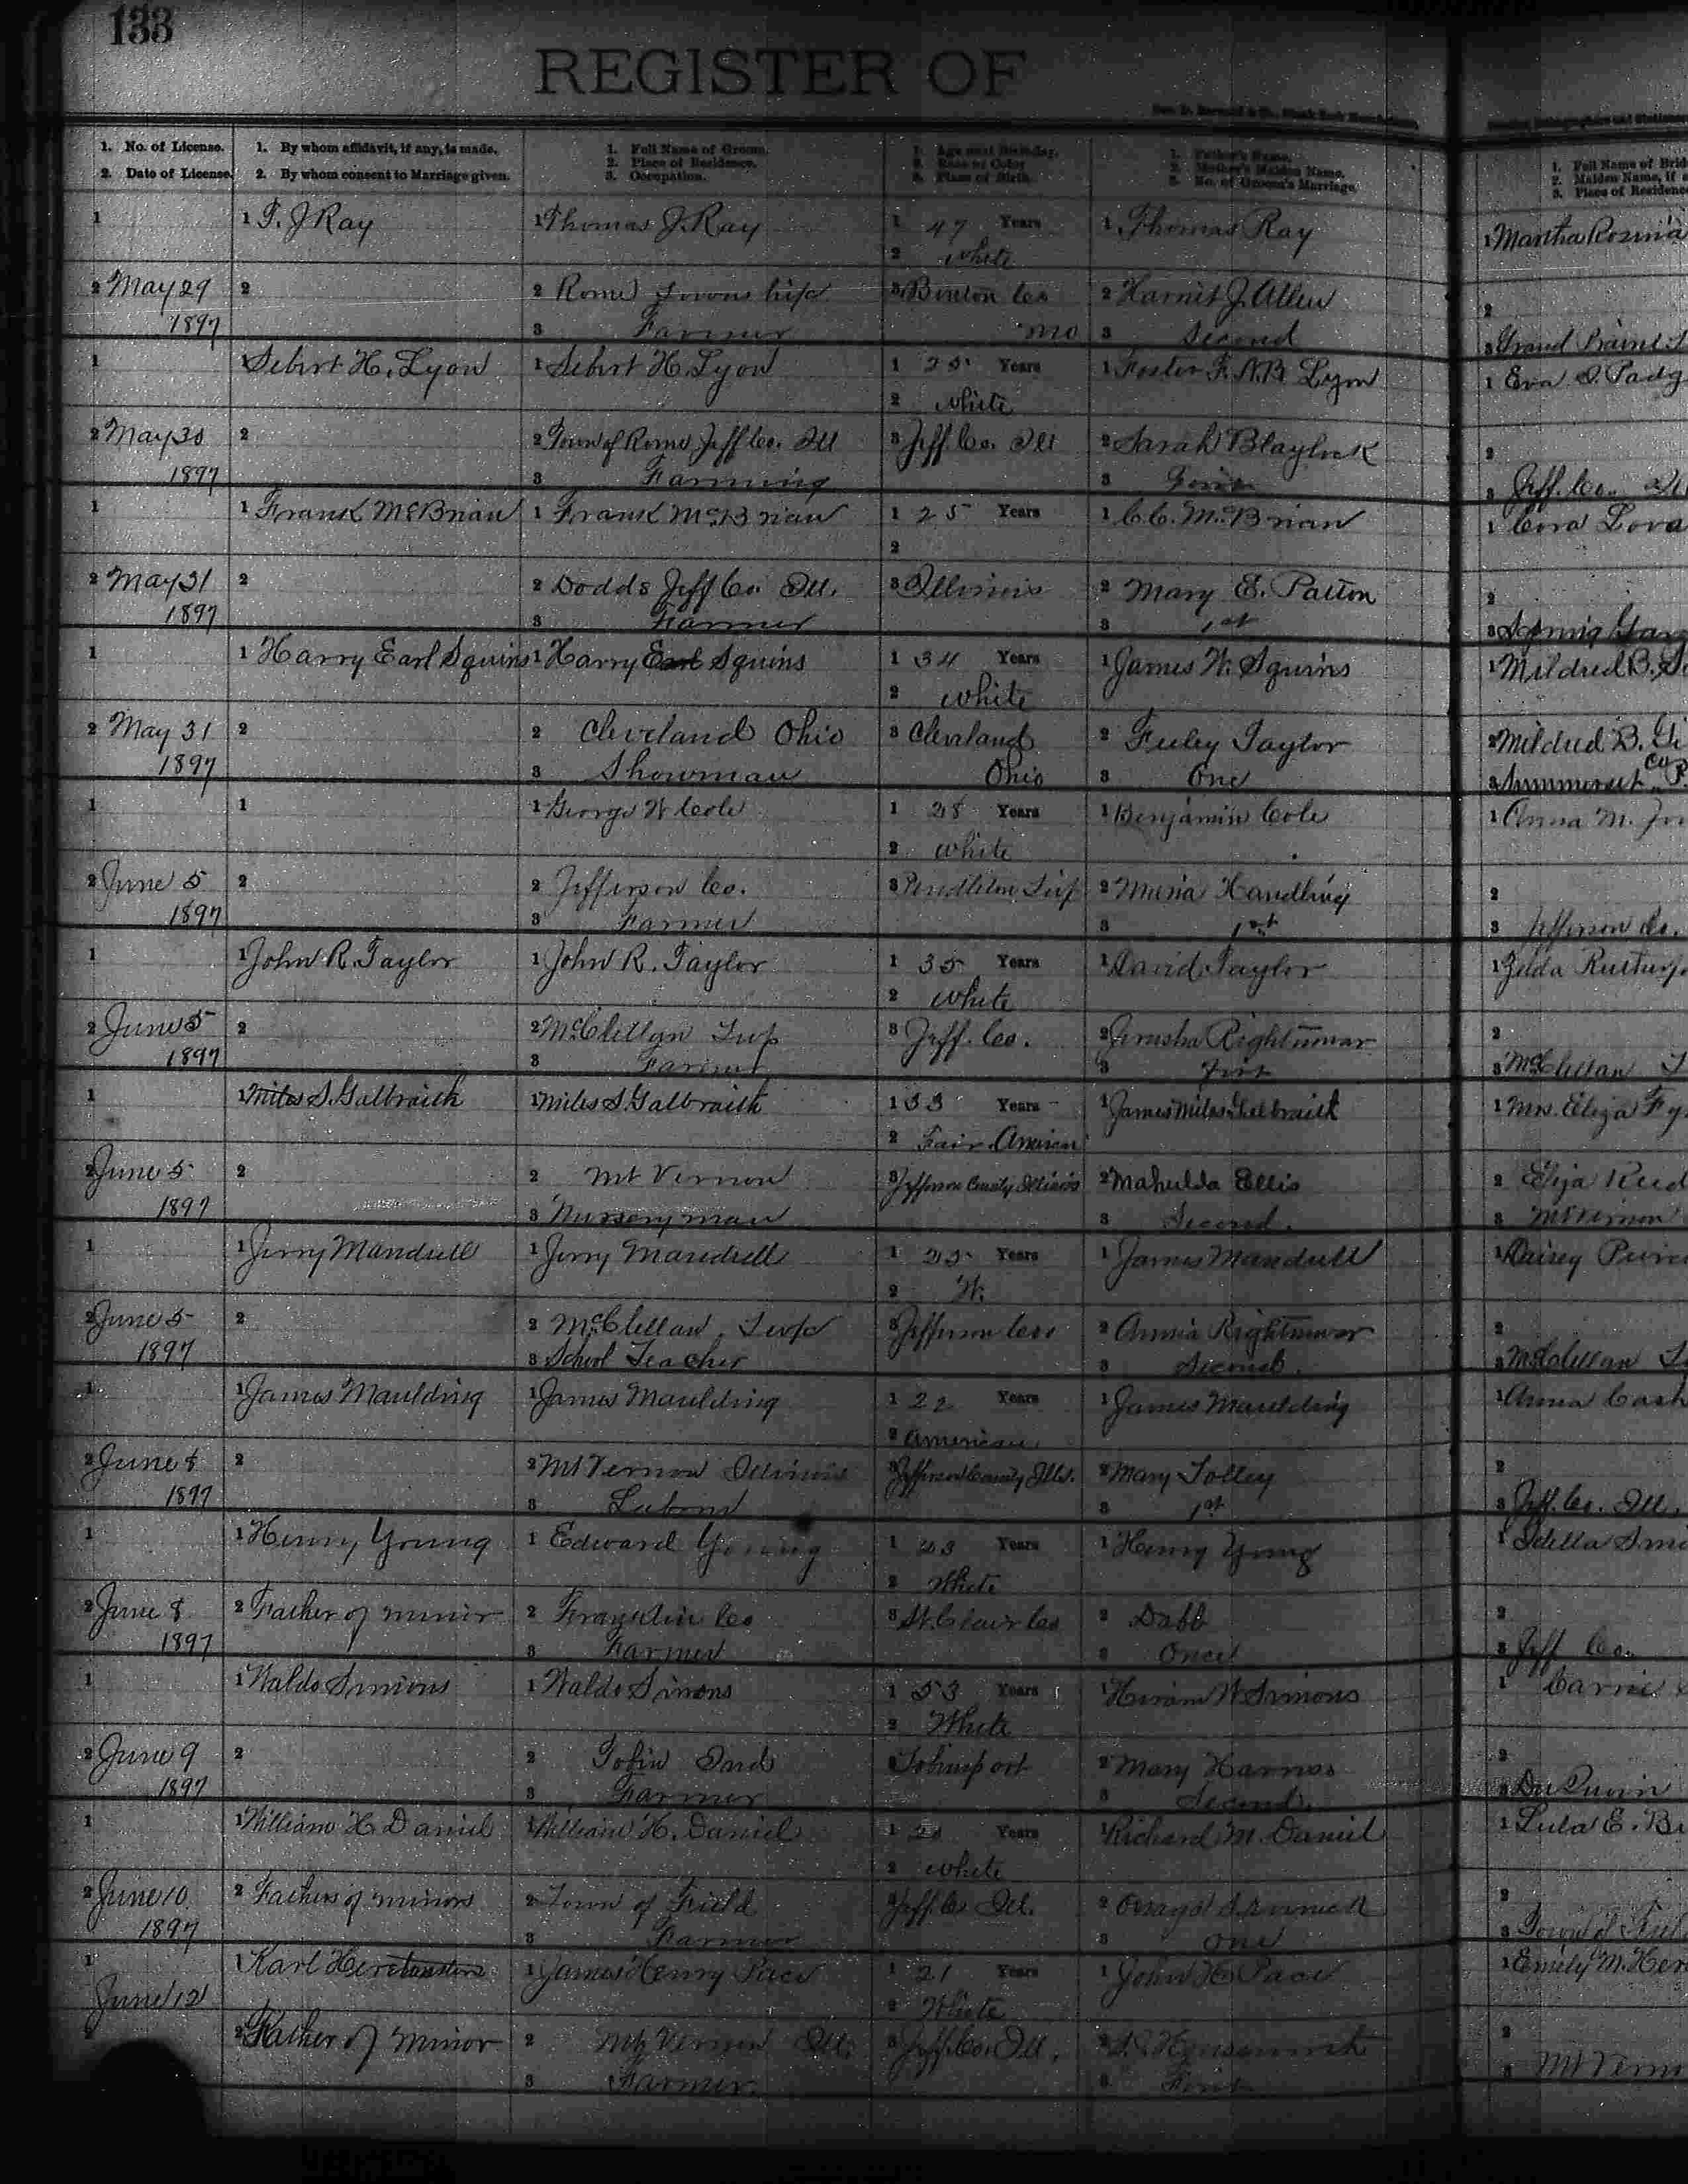 133
REGISTER OF
1. No. of License.
2. Date of License.
1. By whom affidavit, if any, is made.
2. By whom consent to Marriage given.
1. Full Name of Groom.
2. Place of Residence.
3. Occupation.
1. Age next Birthday.
2. Race or Color
3. Place of Birth.
1. Father's Name.
2. Mother's Maiden Name.
3. No. of Groom's Marriage.
1. Full Name of Brid
2. Maiden Name, if a
3. Place of Residenc
1 1 T. J Ray 1 Thomas J. Ray 1 47 Years 1 Thomas Ray 1 Martha Rozina
2 white
2 May 29 2 2 Rome Township 3 Benton Co 2 Harriet J. Allen 2
1897 3 Farmer Mo 3 Second 3 Grand Prairie
1 1 Sebert H. Lyon 1 Sebert H. Lyon 1 25 Years 1 Foster F. Lyon 1 Eva Padg
2 white
2 May 30 2 2 Town of Rome Jeff Co. Ill 3 Jeff. Co. Ill 2 Sarah Blaylock 2
1897 3 Farming 3 3 Jeff. Co. Ill
1 1 Frank McBrian 1 Frank McBrian 1 25 Years 1 C. C. McBrian 1 Cora Lova
2
2 May 31 2 2 Dodds Jeff Co. Ill. 3 Illinois 2 Mary E. Patton 2
1897 3 Farmer 3 1st 3 Spring Gar
1 1 Harry Earl Squires 1 Harry Earl Squires 1 34 Years 1 James W. Squires 1 Mildred B. S
2 white
2 May 31 2 2 Cleveland Ohio 3 Cleveland 2 Taylor 2 Mildred B. Gi
1897 3 Showman Ohio 3 One 3 Summerset Co P.
1 1 1 George W Cole 1 28 Years 1 Benjamin Cole 1 Anna M.
2 white
2 June 5 2 2 Jefferson Co. 3 Pendleton Twp 2 Handling 2
1897 3 Farmer 3 1st 3 Jefferson Co.
1 1 John R. Taylor 1 John R. Taylor 1 35 Years 1 David Taylor 1 Zelda
2 white
2 June 5 2 2 McClellan Twp 3 Jeff. Co. 2 Jerusha Rightnowar 2
1897 3 Farmer 3 First 3 McClellan T
1 1 Miles S. Galbraith 1 Miles S. Galbraith 1 53 Years 1 James Miles Galbraith 1 Mrs. Eliza Fy
2 Fair American
2 June 5 2 2 Mt Vernon 3 Jefferson County Illinois 2 Mahulda Ellis 2 Eliza Reed
1897 3 Nurseryman 3 Second. 3 Mt Vernon
1 1 Jerry Mandrell 1 Jerry Mandrell 1 25 Years 1 James Mandrell 1 Daisey
2 W.
2 June 5 2 2 McClellan Twp 3 Jefferson Co 2 Annie Rightnowar 2
1897 3 School Teacher 3 Second. 3 McClellan T
1 1 James Maulding 1 James Maulding 1 22 Years 1 James Maulding 1 Anna Cash
2 American
2 June 8 2 2 Mt Vernon Illinois 3 Jefferson County Ills. 2 Mary Tolley 2
1897 3 3 1st 3 Jeff. Co. Ill.
1 1 Henry Young 1 Edward Young 1 Years 1 Henry Young 1 Idella Smi
2 White
2 June 8 2 Father of minor 2 Franklin Co 3 St. Clair Co 2 Dabb 2
1897 3 Farmer 3 Once 3 Jeff Co.
1 1 Waldo Simons 1 Waldo Simons 1 53 Years 1 Hiram W Simons 1 Carrie
2 White
2 June 9 2 2 Tobin Inds 3 Tobinsport 2 Mary Harnas 2
1897 3 Farmer 3 Second. 3 Du Quoin
1 1 William H. Daniel 1 William H. Daniel 1 Years 1 Richard M. Daniel 1 Lula E. Br
2 white
2 June 10 2 Fathers of minors 2 Town of Field 3 Jeff. Co Ill. 2 2
1897 3 Farmer 3 One 3 Town of Fiel
1 1 Karl 1 James Henry Pace 1 21 Years 1 John H. Pace 1 Emily M. Her
June 12 2 White
2 2 Father of Minor 2 Mt Vernon Ill. 3 Jeff. Co. Ill. 2 2
3 Farmer. 3 First 3 Mt Vern